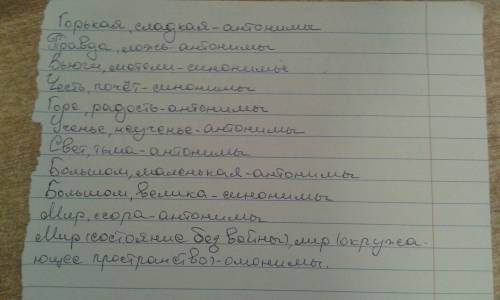 Горькая, сладкая-антонимы
Правда, ложь-антонимы
Вьюги, метели-синонимы
Честь, почёт-синонимы
Горе, радость-антонимы
Ученье, неученье-антонимы
Свет, тьма-антонимы
Большом, маленькая-антонимы
Большом, велика-синонимы
Мир, ссора-антонимы
Мир (состояние без войны), мир (окружа-
ющее пространство)-омонимы.